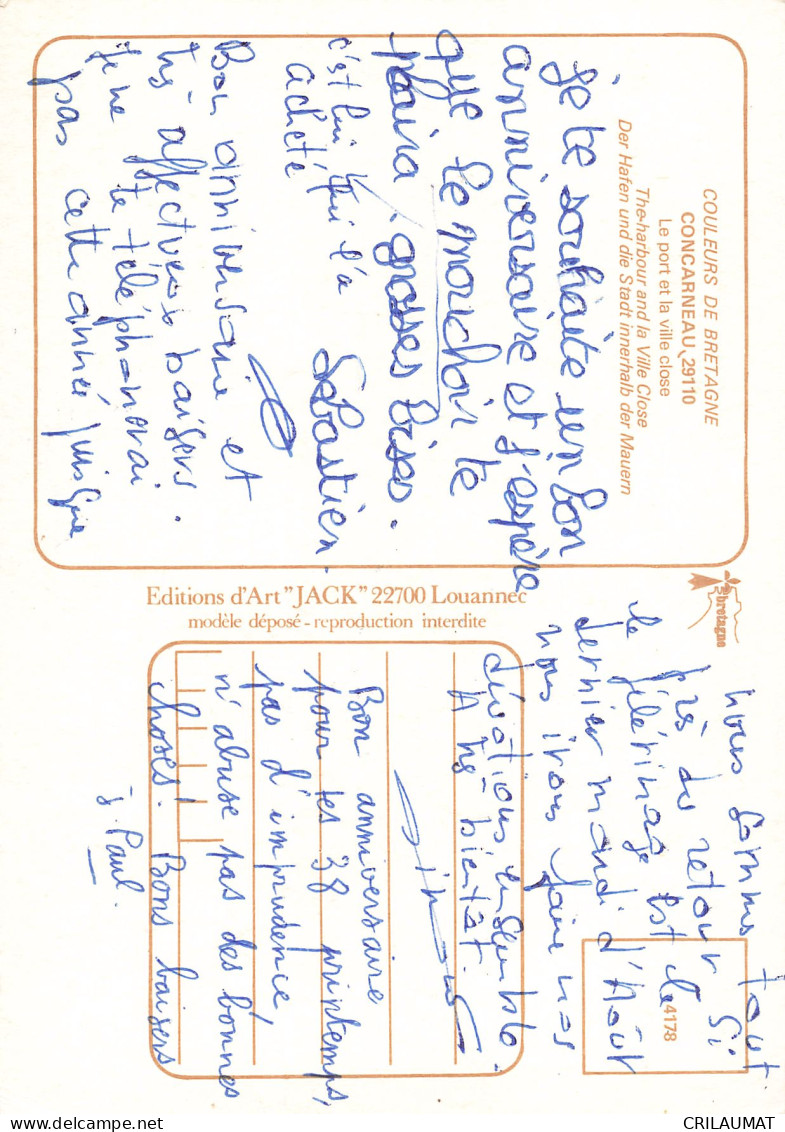 COULEURS DE BRETAGNE
CONCARNEAU 29110
Le port et la ville close
The harbour and la Ville Close
Der Hafen und die Stadt innerhalb der Mauern
je te souhaite un bon
anniversaire et j'espère
que le mouchoir te
plaira. grosses bises.
c'est lui qui l'a
acheté
Sébastien.
Bon anniversaire et
très affectueux baisers.
Je ne te téléphonerai
pas cette année puisque
nous sommes tout
près du retour si
le pélerinage est le
dernier mardi d'Août
nous irons faire nos
dévotions ensemble.
A très bientôt.
Bon anniversaire
pour tes 38 printemps,
pas d'imprudence
n'abuse pas des bonnes
choses! Bons baisers
J. Paul.
Editions d'Art "JACK" 22700 Louannec
modèle déposé - reproduction interdite
bretagne
4178
CRILAUMAT